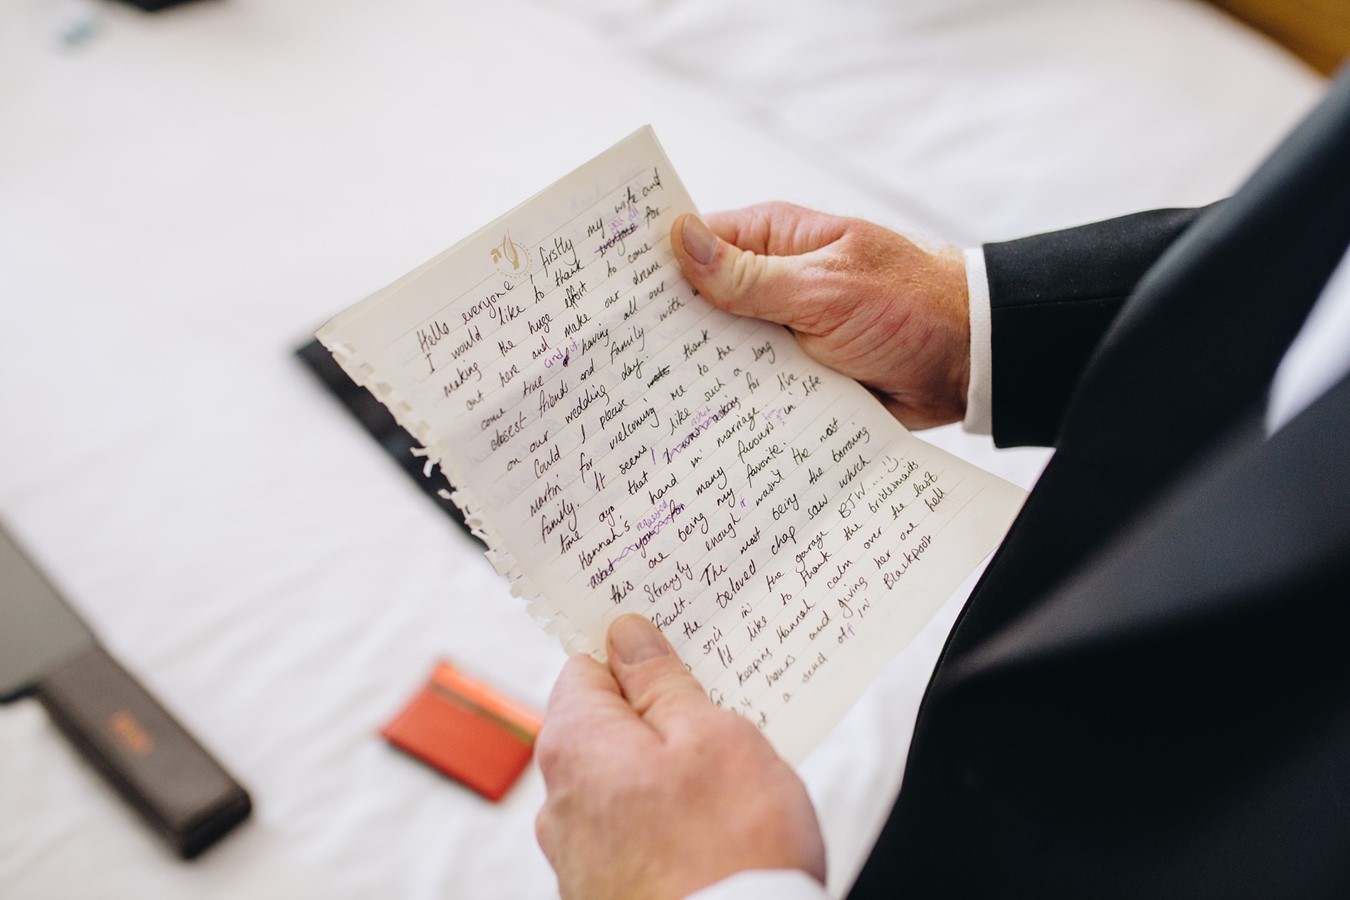 Hello everyone, firstly my wife and
I would like to thank everyone you all for
making the huge effort to come
out here and make our dreams
come true and of having all our
closest friends and family with us
on our wedding day.
Could I please thank
Martin for welcoming me to the
family. It seems like such a long
time ago that I asked for
Hannah's hand in marriage I've
about requested many favours in life
this one being my favorite.
Strangly enough it wasn't the most
The most being the borrowing
the beloved chap saw which
still in the garage BTW....
I'd like to thank the bridesmaids
for keeping Hannah calm over the last
24 hours and giving her one hell
of a send off in Blackpool